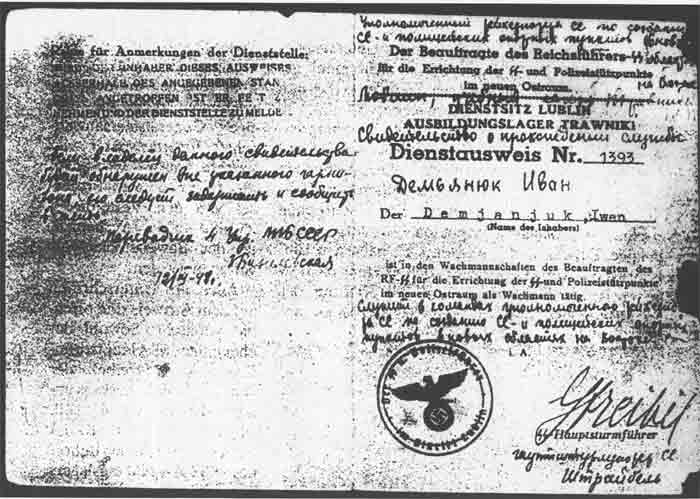 für Anmerkungen der Dienststelle:
INHABER DIESES AUSWEISES
DES ANGEGEBENEN STAN
ANGETROFFEN IST ER FE T
NEHMEN UND DER DIENSTSTELLE ZU MELDE
данного свидетельства
обнаружен вне указанного гарни-
зона, его следует задержать и сообщить
Переводчик 4 Упр. МГБ СССР
уполномоченный рейхсфюрера СС по созданию
СС и полицейских опорных пунктов
Der Beauftragte des Reichsführers-SS
für die Errichtung der SS- und Polizeistützpunkte
im neuen Ostraum.
DIENSTSITZ LUBLIN
AUSBILDUNGSLAGER TRAWNIKI
Свидетельство о прохождении службы
Dienstausweis Nr. 1393
Демьянюк Иван
Der Demjanjuk, Iwan
(Name des Inhabers)
ist in den Wachmannschaften des Beauftragten des
RF-SS für die Errichtung der SS- und Polizeistützpunkte
im neuen Ostraum als Wachmann tätig.
Служит в уполномоченного
СС по созданию СС- и полицейских опорных
пунктов в новых областях на Востоке
Der SS- u. Polizeiführer
im Distrikt Lublin
Streibel
SS Hauptsturmführer
гауптштурмфюрер СС
Штрайбель